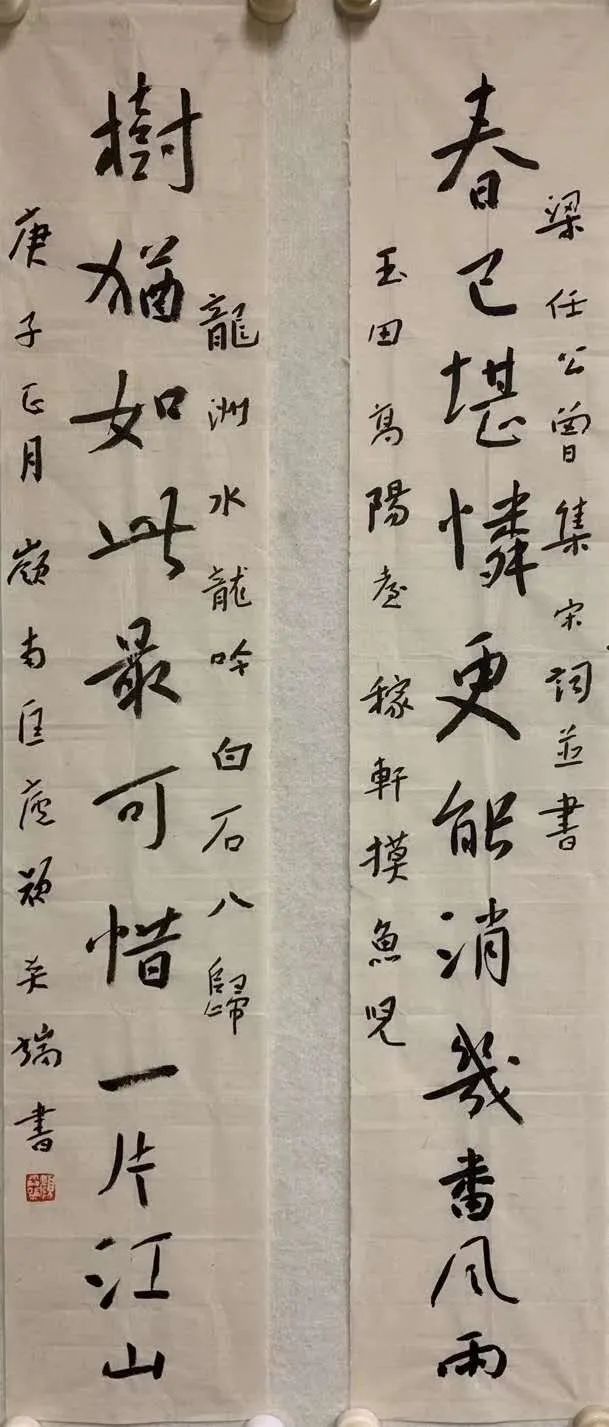 梁任公曾集宋詞並書
春已堪憐更能消幾番風雨
玉田高陽臺 稼軒摸魚兒
龍洲水龍吟白石八歸
樹猶如此最可惜一片江山
庚子正月嶺南匡廬顏奕端書